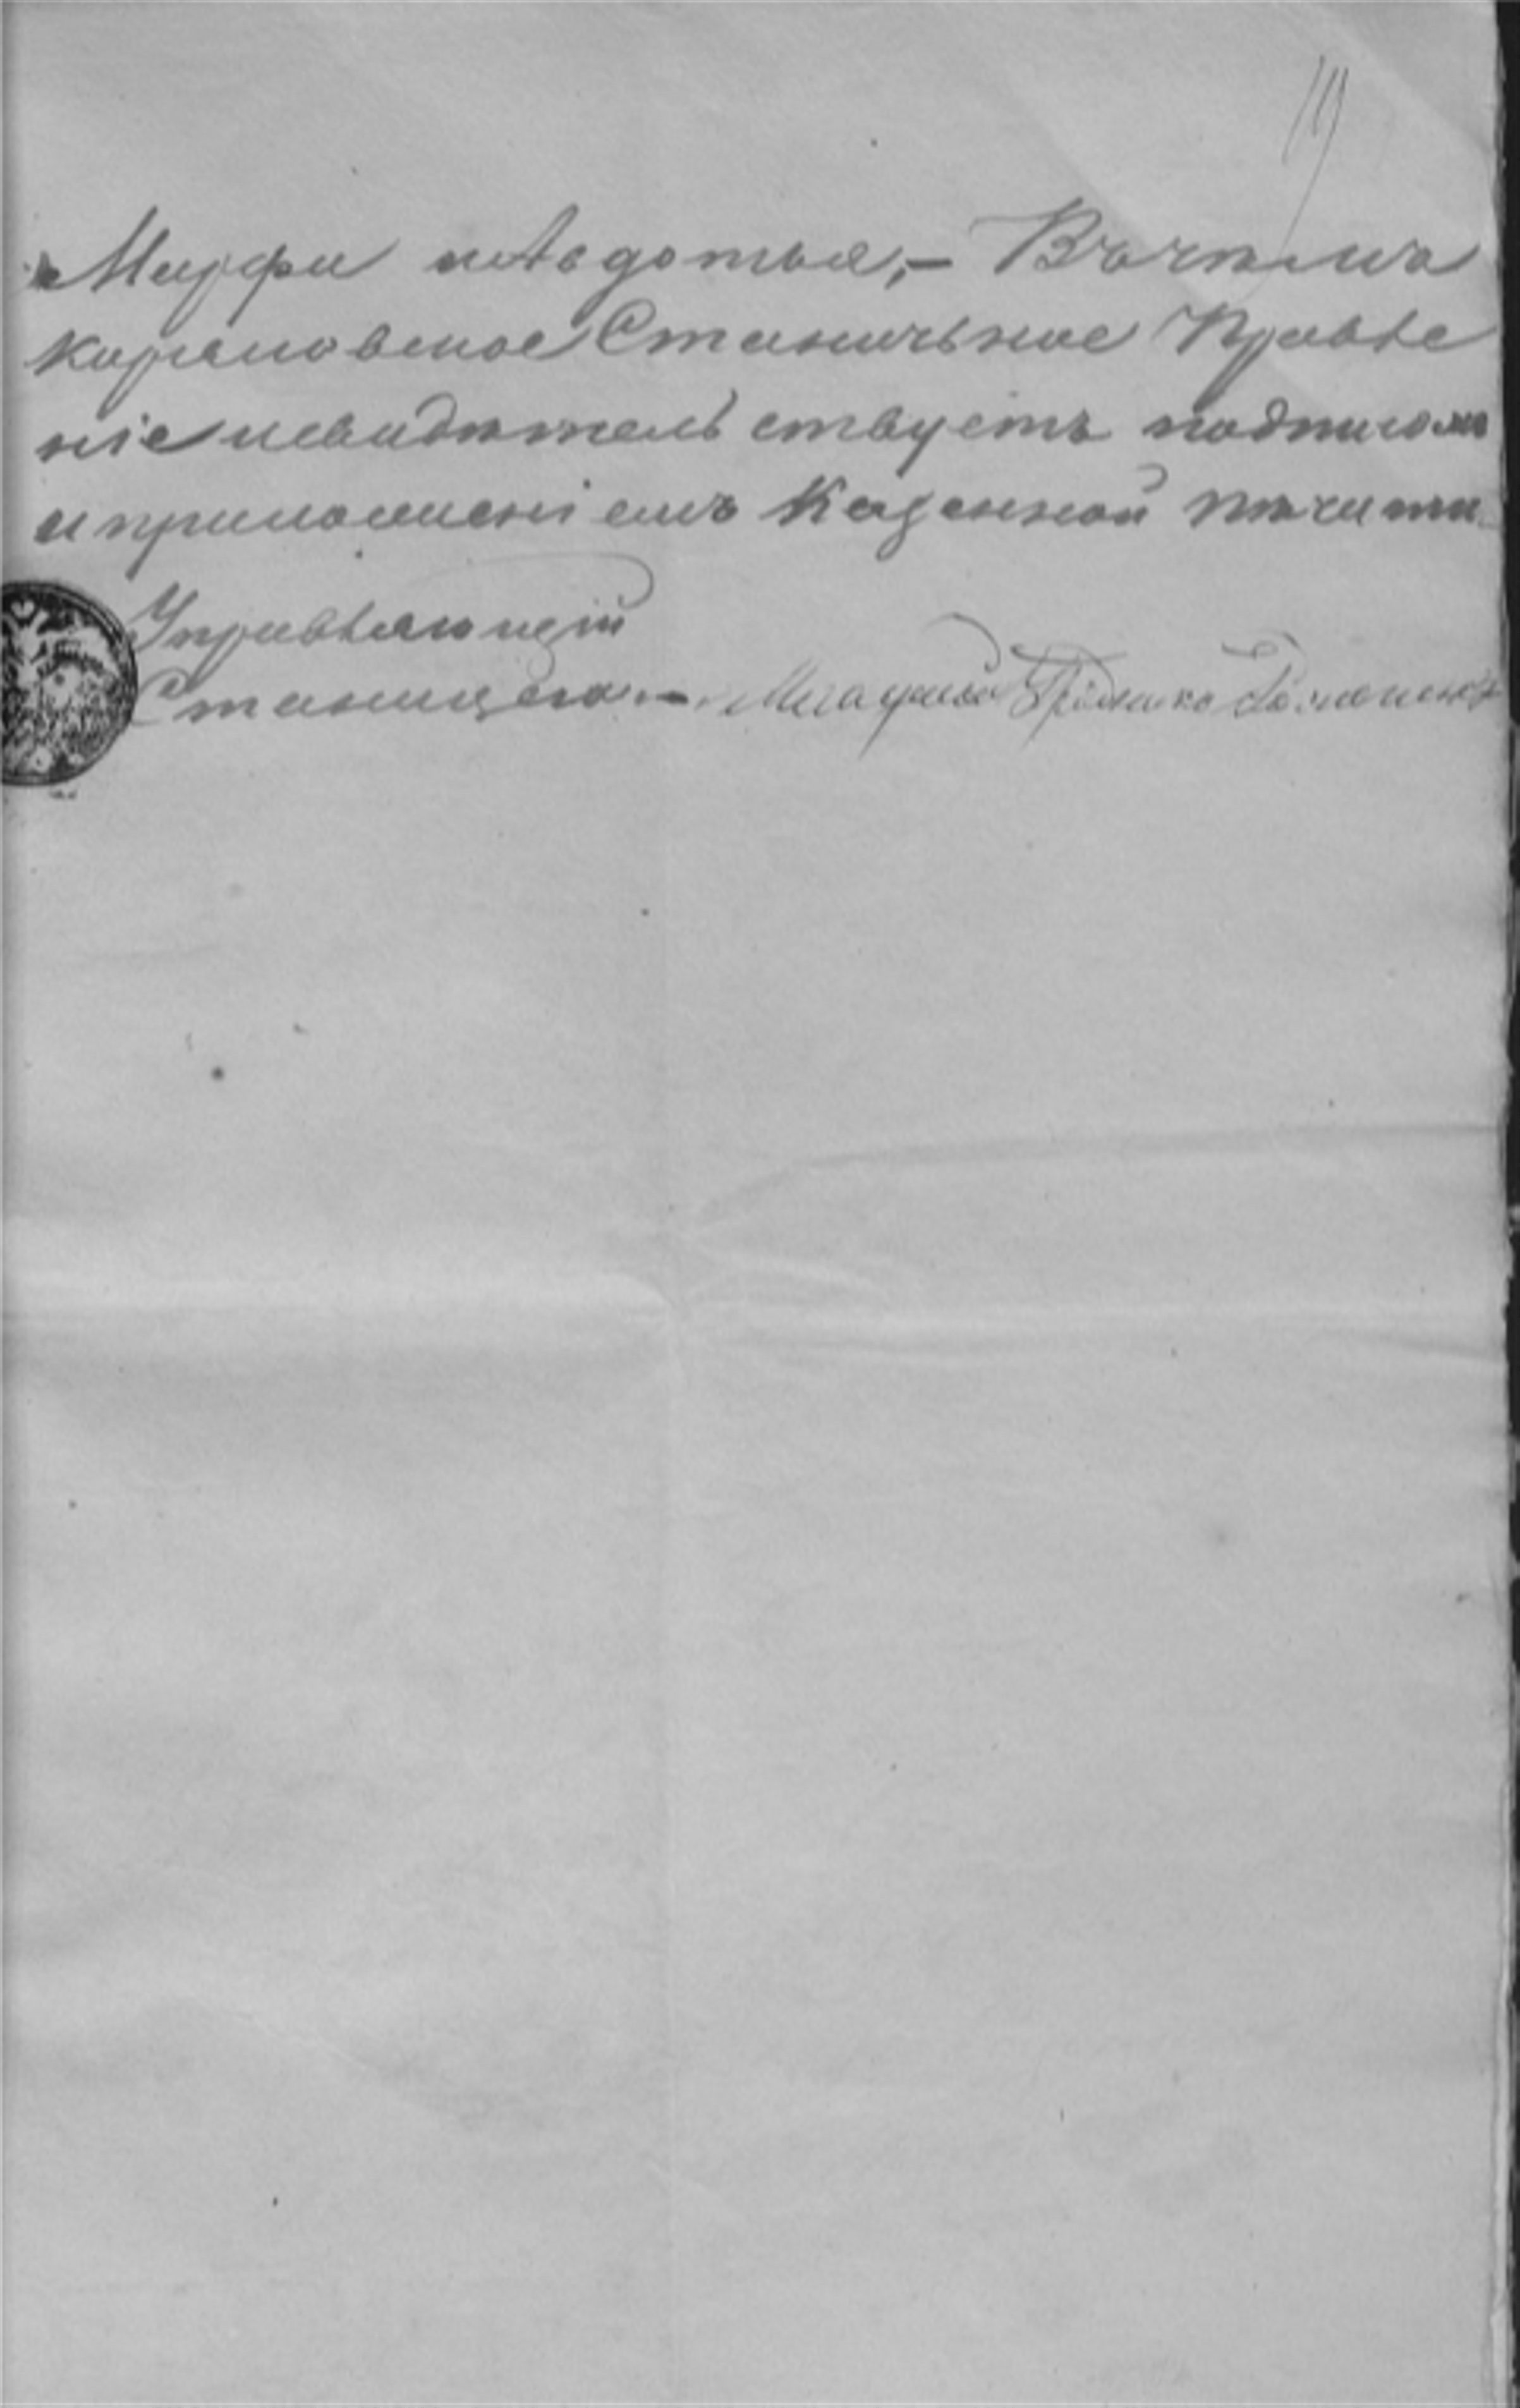 19
Марфа иАвдотья, – Вочемъ
Карановское Станичьное Правле
ніе исвидетельствуетъ подписомъ
иприложеніемъ Казенной печити
Управляющій
Станицею –